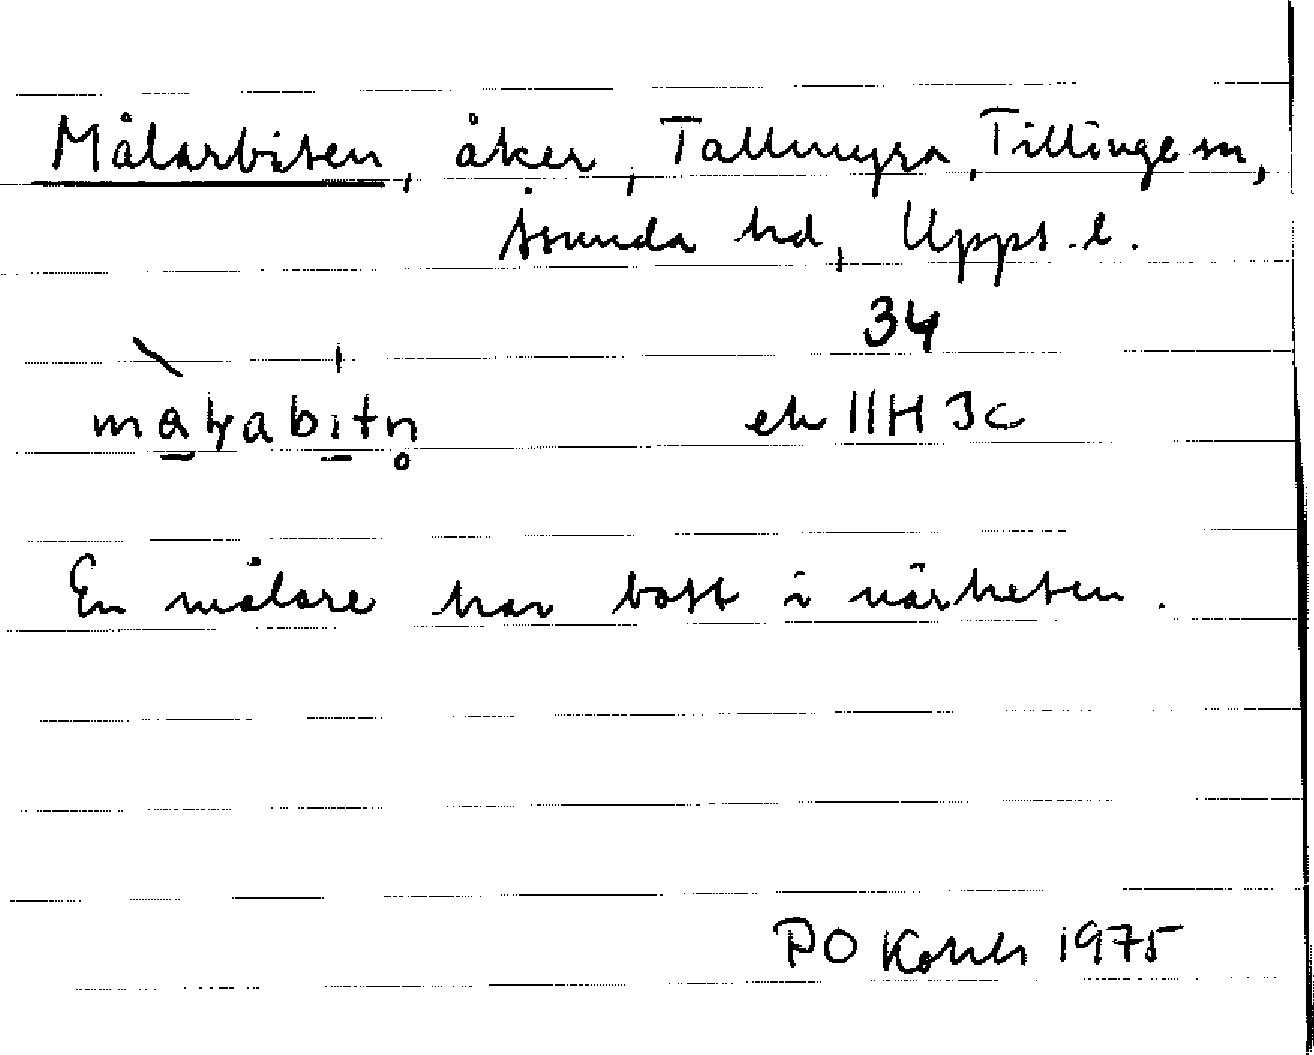 Målarbiten, åker, Tallmyra, Tillinge sn,
Åsunda hd, Upps. l.
34
ek 11H 3c
En målare har bott i närheten.
PO 1975